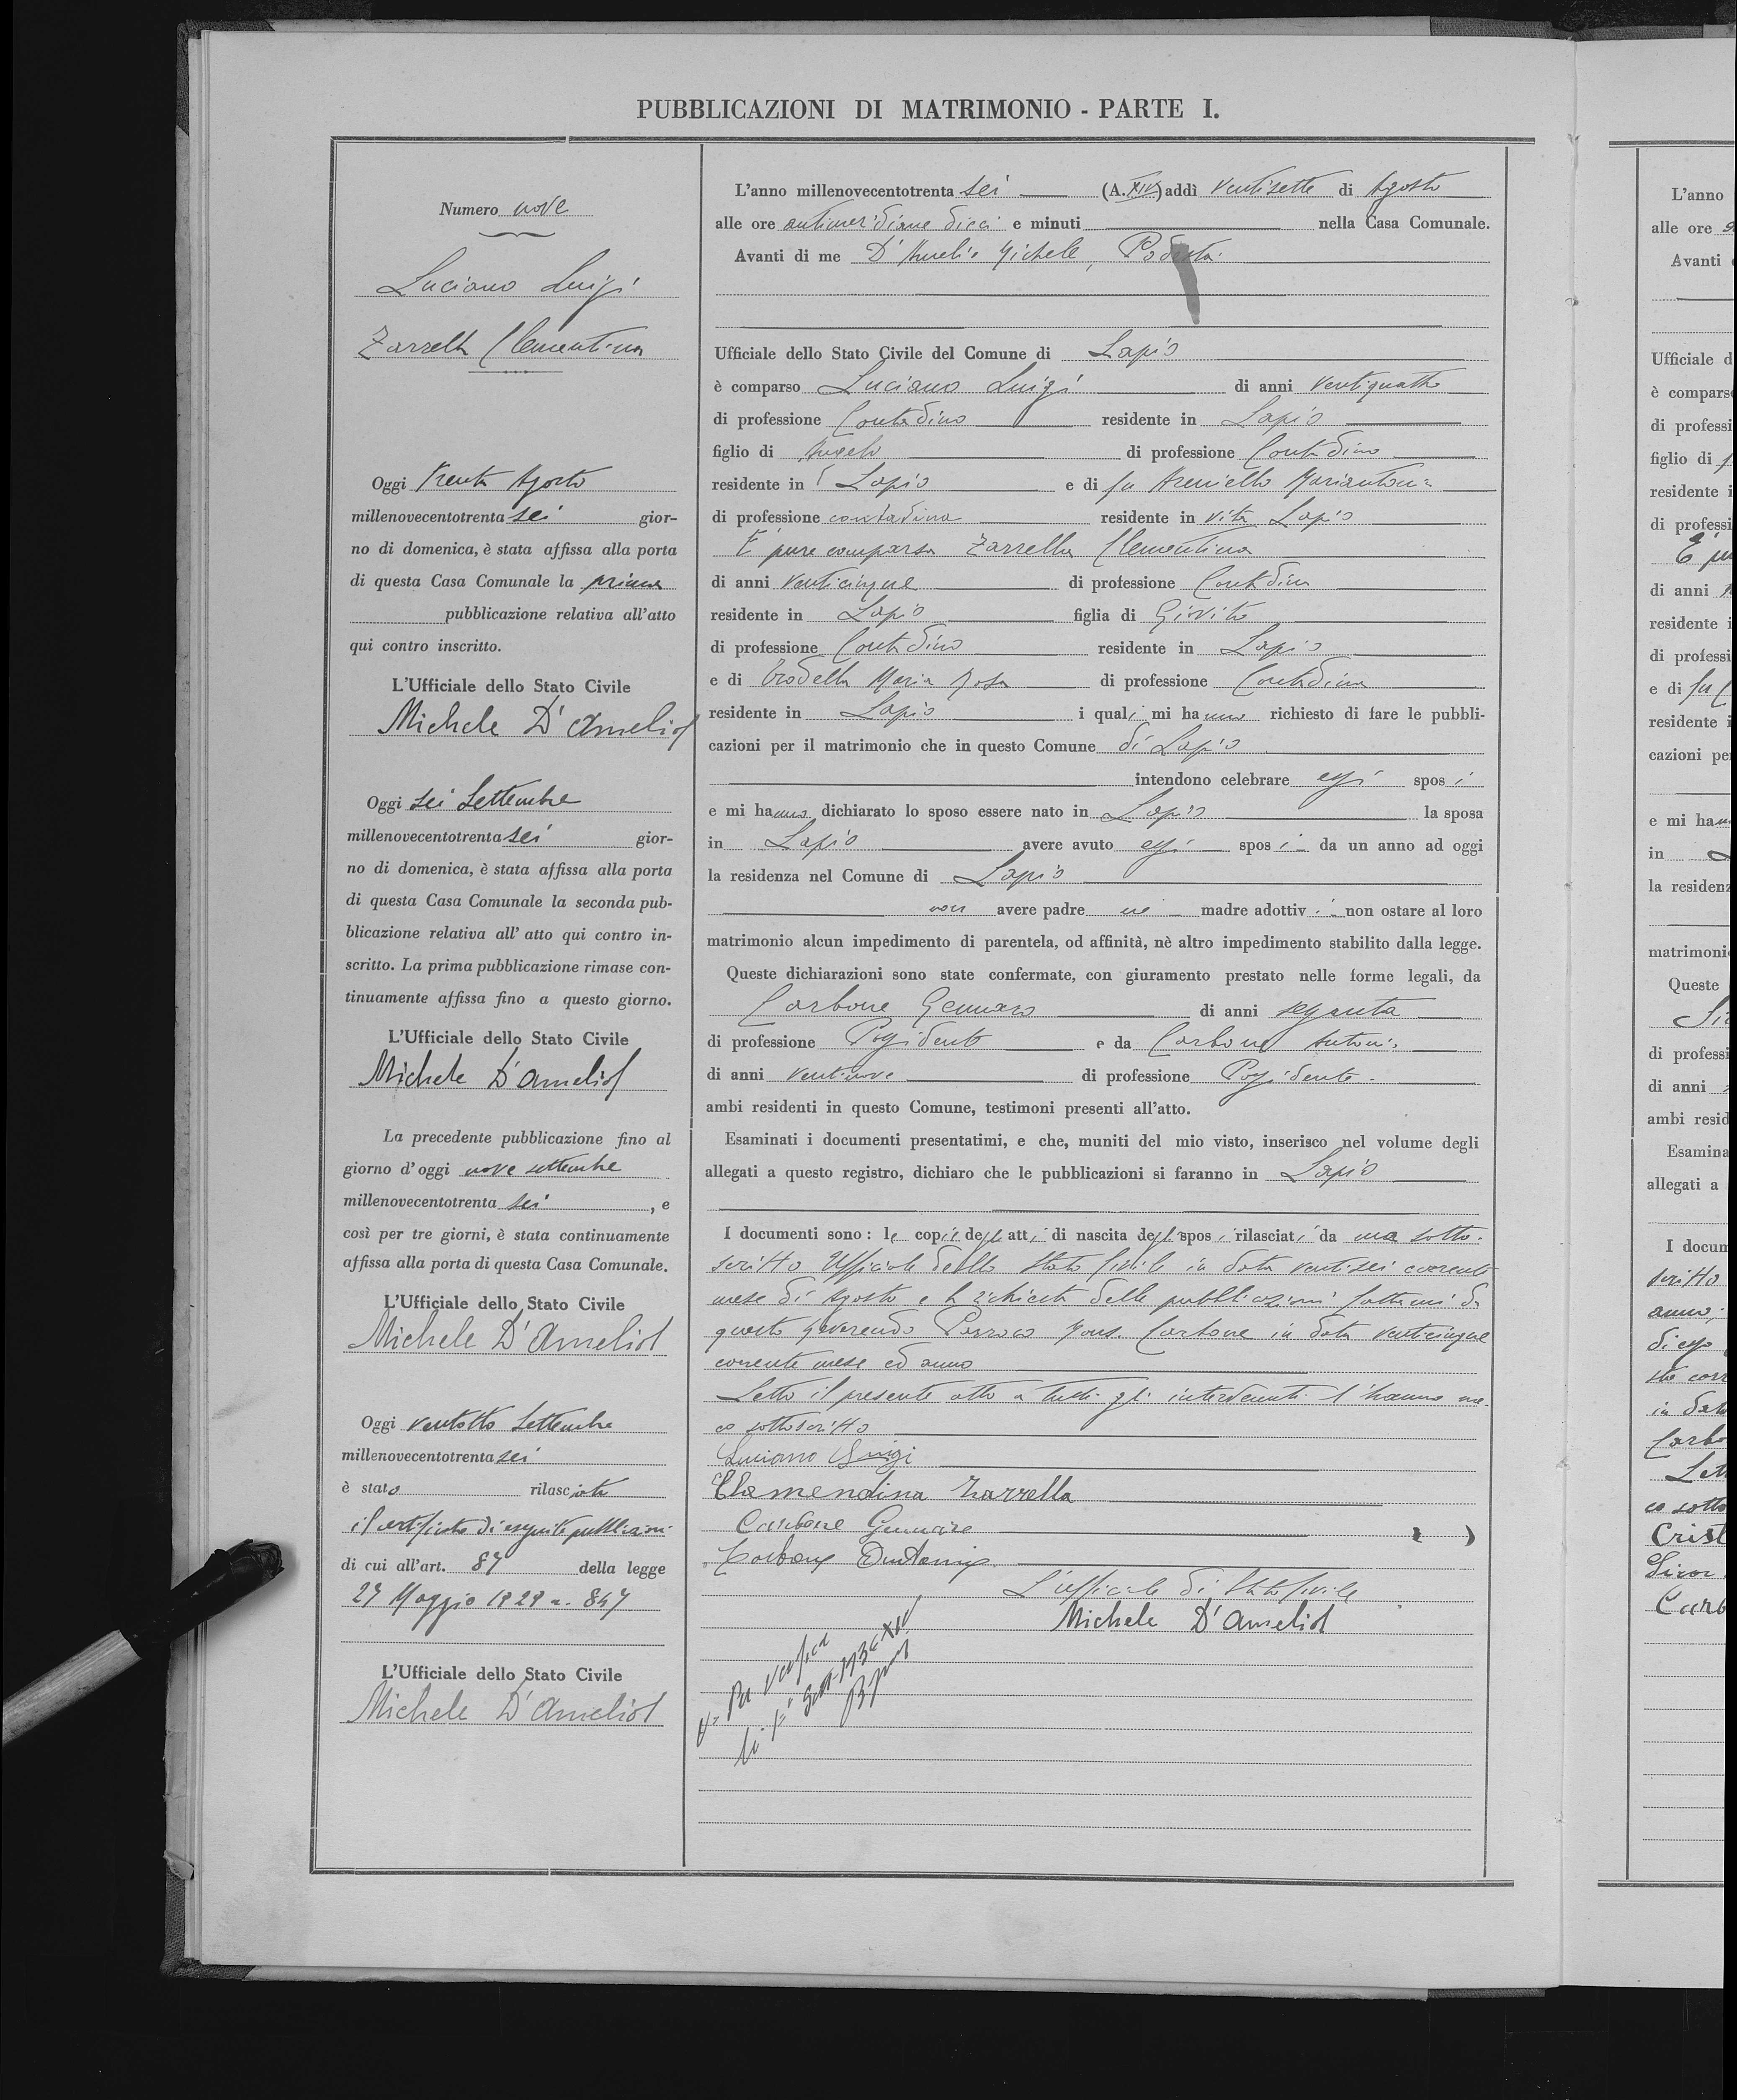 PUBBLICAZIONI DI MATRIMONIO - PARTE I.
Numero nove
Luciano Luigi
Zarrella Clementina
Oggi trenta Agosto
millenovecentotrenta sei gior-
no di domenica, è stata affissa alla porta
di questa Casa Comunale la prima
pubblicazione relativa all'atto
qui contro inscritto.
L'Ufficiale dello Stato Civile
Michele D'Amelio
Oggi sei Settembre
millenovecentotrenta sei gior-
no di domenica, è stata affissa alla porta
di questa Casa Comunale la seconda pub-
blicazione relativa all'atto qui contro in-
scritto. La prima pubblicazione rimase con-
tinuamente affissa fino a questo giorno.
L'Ufficiale dello Stato Civile
Michele D'Amelio
La precedente pubblicazione fino al
giorno d'oggi nove settembre
millenovecentotrenta sei, e
così per tre giorni, è stata continuamente
affissa alla porta di questa Casa Comunale.
L'Ufficiale dello Stato Civile
Michele D'Amelio
Oggi ventotto Settembre
millenovecentotrenta sei
è stato rilasciato
il certificato di eseguite pubblicazioni
di cui all'art. 87 della legge
27 Maggio 1929 n. 847
L'Ufficiale dello Stato Civile
Michele D'Amelio
L'anno millenovecentotrenta sei (A. XIV) addì ventisette di Agosto
alle ore antimeridiane dieci e minuti nella Casa Comunale.
Avanti di me D'Amelio Michele, Podestà
Ufficiale dello Stato Civile del Comune di Lapio
è comparso Luciano Luigi di anni ventiquattro
di professione Contadino residente in Lapio
figlio di Angelo di professione Contadino
residente in Lapio e di fu Areniello Mariantonia
di professione contadina residente in vita Lapio
È pure comparsa Zarrella Clementina
di anni venticinque di professione Contadina
residente in Lapio figlia di Giovito
di professione Contadino residente in Lapio
e di Trodella Maria Rosa di professione Contadina
residente in Lapio i quali mi hanno richiesto di fare le pubbli-
cazioni per il matrimonio che in questo Comune di Lapio
intendono celebrare essi sposi
e mi hanno dichiarato lo sposo essere nato in Lapio la sposa
in Lapio avere avuto essi sposi da un anno ad oggi
la residenza nel Comune di Lapio
non avere padre nè madre adottivi non ostare al loro
matrimonio alcun impedimento di parentela, od affinità, nè altro impedimento stabilito dalla legge.
Queste dichiarazioni sono state confermate, con giuramento prestato nelle forme legali, da
Carbone Gennaro di anni sessanta
di professione Possidente e da Carbone Antonio
di anni ventinove di professione Possidente.
ambi residenti in questo Comune, testimoni presenti all'atto.
Esaminati i documenti presentatimi, e che, muniti del mio visto, inserisco nel volume degli
allegati a questo registro, dichiaro che le pubblicazioni si faranno in Lapio
I documenti sono: le copie degli atti di nascita degli sposi rilasciati da me sotto-
scritto Ufficiale dello Stato Civile in data ventisei corrente
mese di Agosto e la richiesta delle pubblicazioni fattami da
questo Reverendo Parroco Mons. Carbone in data venticinque
corrente mese ed anno
Letto il presente atto a tutti gli intervenuti l'hanno me-
co sottoscritto
Luciano Luigi
Clamendina Zarrella
Carbone Gennaro
Carbone Antonio
L'ufficiale di Stato Civile
Michele D'Amelio
L'anno
alle ore
Avanti
Ufficiale d
è comparso
di professi
figlio di
residente i
di professi
È pu
di anni
residente i
di professi
e di fu
residente i
cazioni pe
e mi han
in
la residenz
matrimoni
Queste
di professi
di anni
ambi resid
Esamina
allegati a
I docum
scritto
anno;
in data
Carbo
Lett
co sotto
Crist
Carb